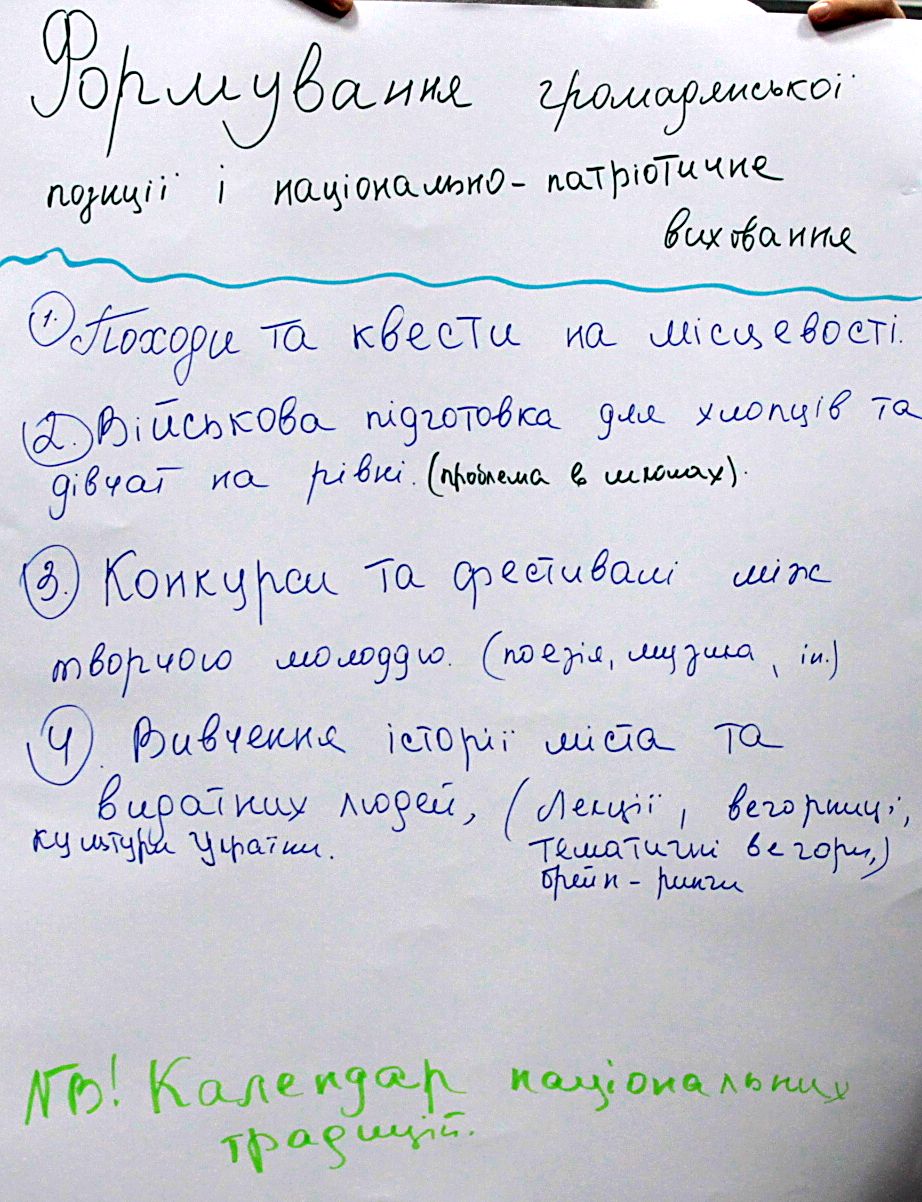 Формування громадянської
позиції і національно-патріотичне
виховання
1. Походи та квести на місцевості.
2. Військова підготовка для хлопців та
дівчат на рівні. (проблема в школах).
3. Конкурси та фестивалі між
творчою молоддю. (поезія, музика, ін.)
4. Вивчення історії міста та
видатних людей, (Лекції, вечорниці,
культури України. тематичні вечори,)
брейн-ринги
NB! Календар національних
традицій.